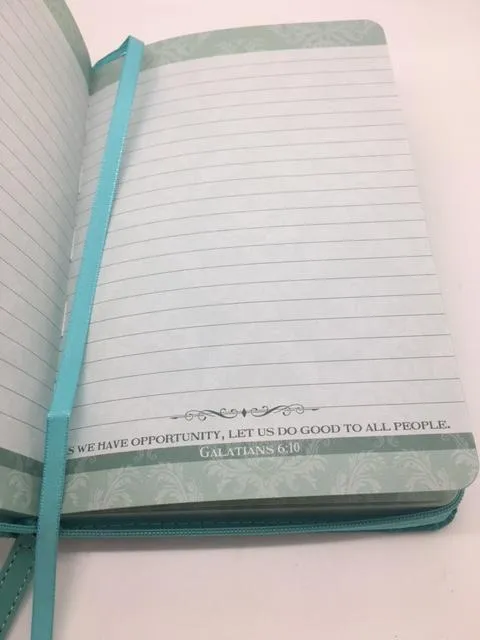 S WE HAVE OPPORTUNITY, LET US DO GOOD TO ALL PEOPLE.
GALATIANS 6:10